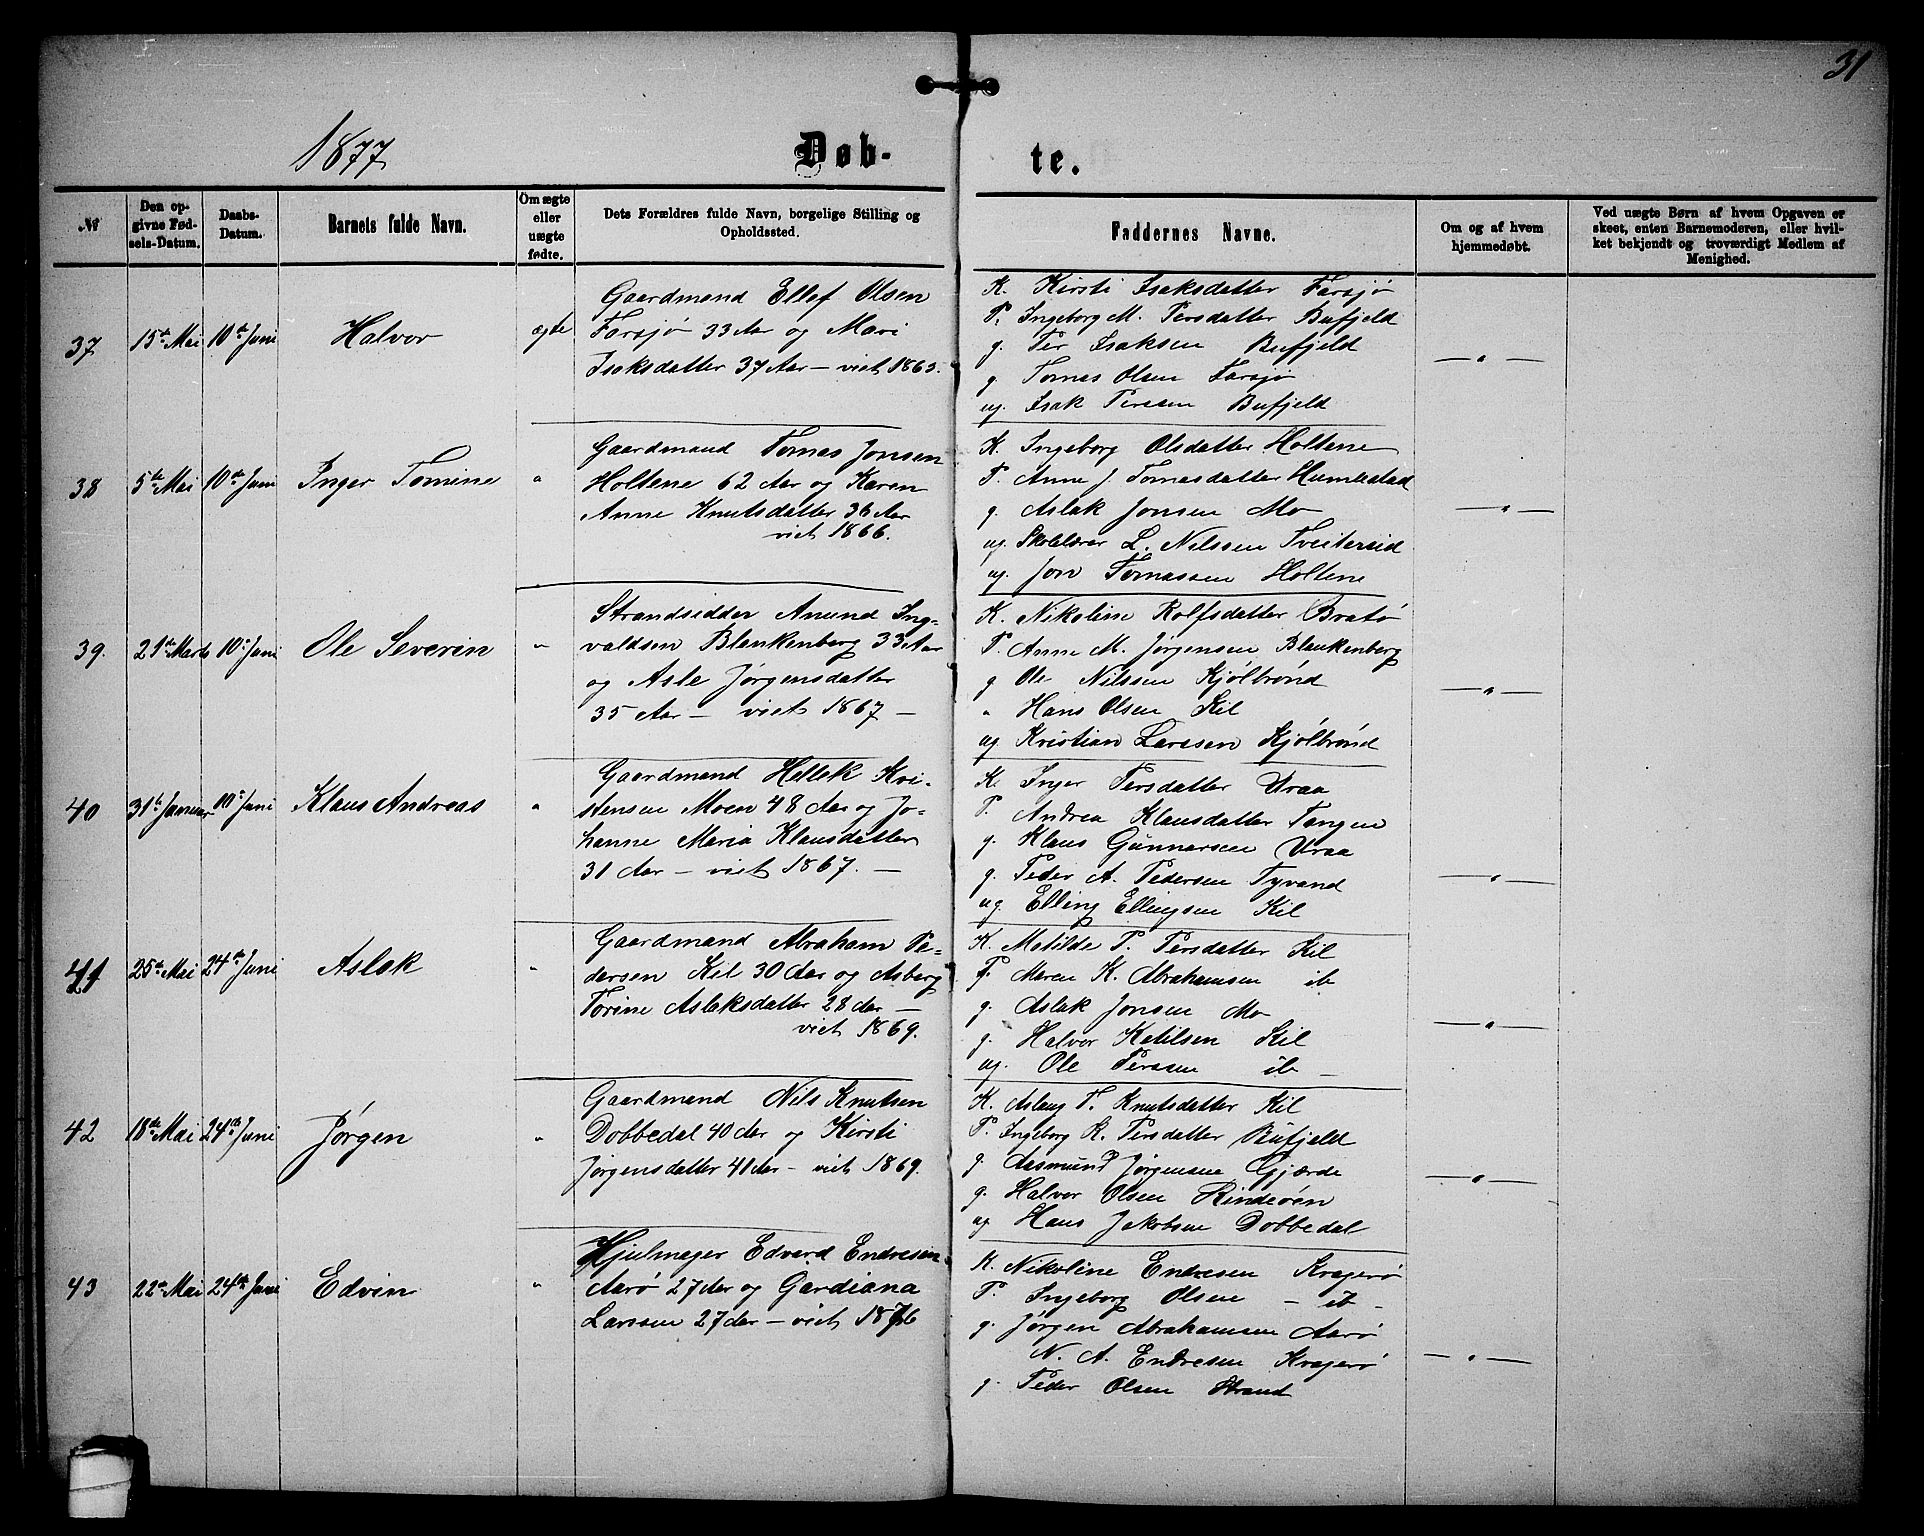 31
1877
Døb-
te.
№
Den op-
givne Fød-
sels-Datum.
Daabs-
Datum.
Barnets fulde Navn.
Om ægte
eller
uægte
fødte.
Dets Forældres fulde Navn, borgelige Stilling og
Opholdssted.
Faddernes Navne.
Om og af hvem
hjemmedøbt.
Ved uægte Børn af hvem Opgaven er
skeet, enten Barnemoderen, eller hvil-
ket bekjendt og troværdigt Medlem af
Menighed.
37
15de Mai
10de Juni
Halvor
ægte
Gaardmand Ellef Olsen
Farsjø 33 Aar og Mari
Isaksdatter 37 Aar — viet 1865.
K. Kirsti Isaksdatter Farsjø
P. Ingeborg M. Persdatter Bufjeld
g. Per Isaksen Bufjeld
g. Tomas Olsen Farsjø
ug. Isak Persen Bufjeld
— " —
38
5te Mai
10de Juni
Inger Tomine
"
Gaardmand Tomas Jonsen
Holtene 62 Aar og Karen
Anne Knutsdatter 36 Aar
viet 1866.
K. Ingeborg Olsdatter Holtene
P. Anne J. Tomasdatter Humlestad
g. Aslak Jonsen Mo
ug. Skolelærer L. Nilssen Tveitereid
ug. Jon Tomassen Holtene
— " —
39.
21de Marts
10de Juni
Ole Severin
"
Strandsidder Anund Ing-
valdsen Blankenberg 33 Aar
og Asle Jørgensdatter
35 Aar — viet 1867 —
K. Nikoline Rolfsdatter Bratø
P. Anne M. Jørgensen Blankenberg
g Ole Nilssen Kjølbrønd
" Hans Olsen Kil
ug Kristian Larssen Kjølbrønd
— " —
40
31te Januar
10de Juni
Klaus Andreas
"
Gaardmand Hellek Kri-
stensen Moen 48 Aar og Jo-
hanne Maria Klausdatter
31 Aar — viet 1867. —
K. Inger Persdatter Uraa
P. Andrea Klausdatter Tangen
g. Klaus Gunnarsen Uraa
g. Peder A. Pedersen Tyvand
ug. Elling Ellingsen Kil
— " —
41
25te Mai
24de Juni
Aslak
"
Gaardmand Abraham Pe-
dersen Kil 30 Aar og Asberg
Torine Aslaksdatter 28 Aar —
viet 1869.
K. Matilde P. Persdatter Kil
P. Maren K. Abrahamsen ib
g. Aslak Jonsen Mo
g. Halvor Ketilsen Kil
ug. Ole Persen ib —
— " —
42
18de Mai
24de Juni
Jørgen
"
Gaardmand Nils Knutsen
Dobbedal 40 Aar og Kirsti
Jørgensdatter 41 Aar — viet 1869.
K. Aslaug T. Knutsdatter Kil
P. Ingeborg K. Persdatter Bufjeld
g. Aasmund Jørgensen Gjærde
g. Halvor Olsen
ug Hans Jakobsen Dobbedal
— " —
43
22de Mai
24de Juni
Edvin
"
Hjulmager Edvard Endresen
Aarø 27 Aar og Gardiana
Larssen 27 Aar — viet 1876
K. Nikoline Endresen Kragerø
P. Ingeborg Olsen — ib —
g. Jørgen Abrahamsen Aarø
N. A. Endresen Kragerø
g. Peder Olsen Strand
— " —